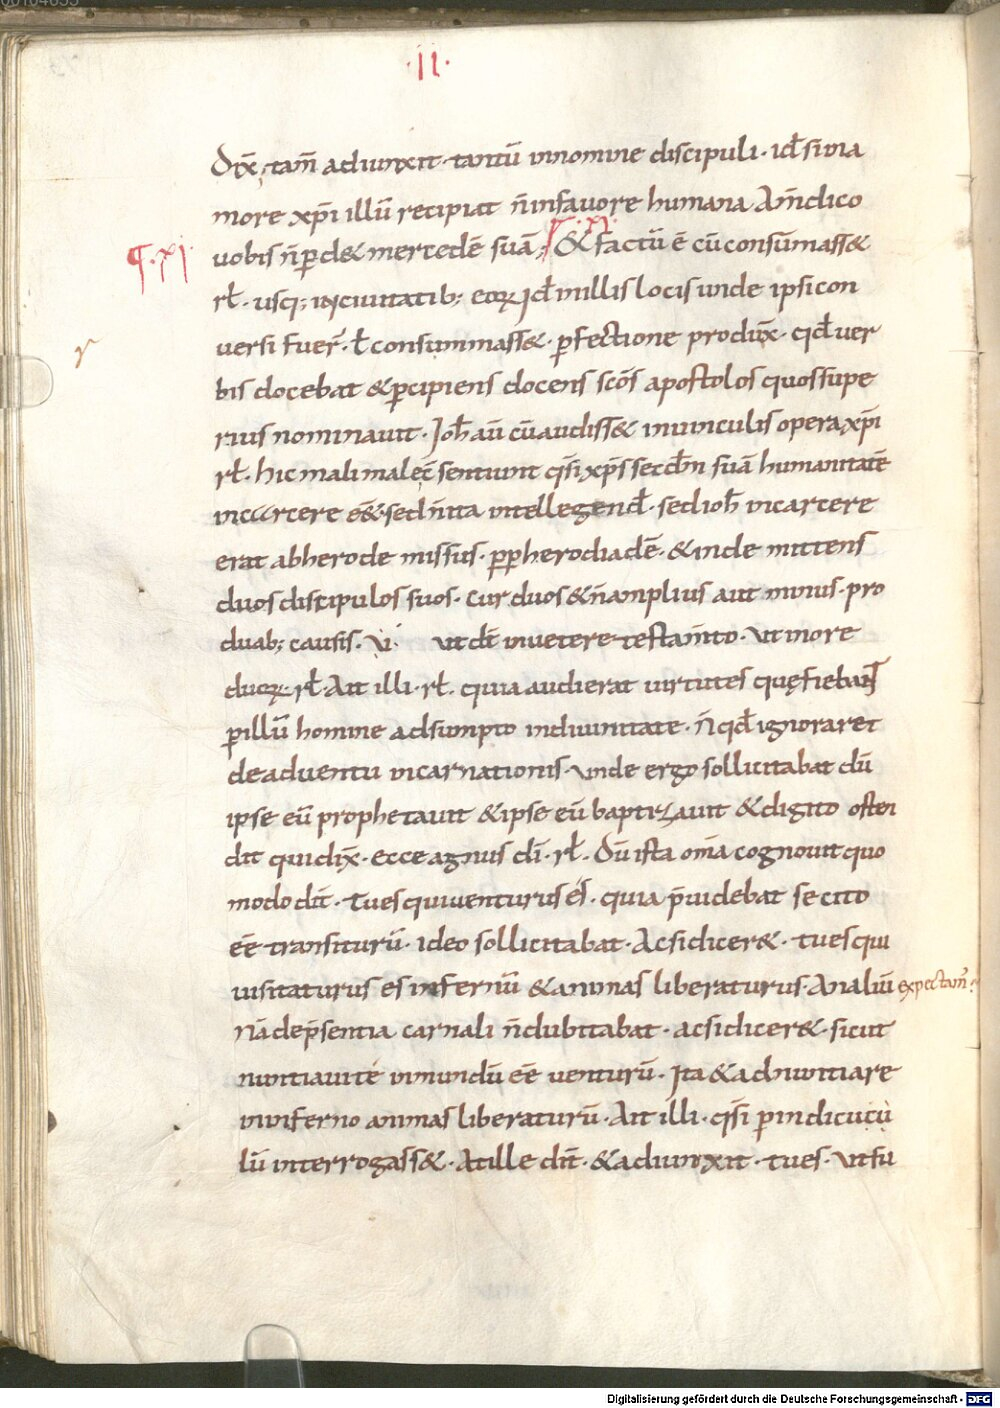 00104655
·II·
Dix̄; tam̄ adiunxit· tantū innomine discipuli· id̄ sima
more xp̄i illū recipiat n̄infauore humana Am̄dico
¶·XI· uobis n̄ꝑd& mercedē suā; ¶·XI· & factū ē cū consūmass&
rł· usq; inciuitatib; eoꝝ id̄ inillis locis unde ipsi con
versi fuer̄· ł consummass&· ꝑfectione produx̄· qd̄ uer
r bis docebat &p̄cipiens docens sc̄os apostolos quos supe
rius nominauit· Joh̄ aū cū audiss& inuinculis opera xp̄i
rł· hic mali male sentiunt qs̄i xp̄s secdm̄ suā humanitatē
incarcere ēe& sed n̄ ita intellegend̄· sed ioh̄ incarcere
erat abherode missus· ꝓp herodiadē· & inde mittens
duos discipulos suos· Cur duos & n̄amplius aut minus· pro
duab; causis· ut dr̄ inuetere testam̄to· ut in ore
duoꝝ rł· Ait illi· rł· quia audierat uirtutes quę fiebant
ꝑ illū homine adsumpto indiuinitate· n̄ qd̄ ignoraret
deaduentu incarnationis· unde ergo sollicitabat dū
ipse eū prophetauit & ipse eū baptizauit & digito osten
dit qui dix̄· ecce agnus dī· rł· Dū ista om̄a cognouit quo
modo dīt· tu es qui uenturus es· quia p̄uidebat se cito
ēe transiturū· ideo sollicitabat· Acsi dicer&· tu es qui
uisitaturus es infernū & animas liberaturus· An aliū expectam̄?
nā dep̄sentia carnali n̄dubitabat· acsi dicer&· sicut
nuntiaui te inmundū ēe venturū· Ita & adnuntiare
ininferno animas liberaturū· Ait illi· qs̄i ꝑ indicuū
lū interrogass&· At ille dīt· & adiunxit· tu es· ut su
Digitalisierung gefördert durch die Deutsche Forschungsgemeinschaft - DFG